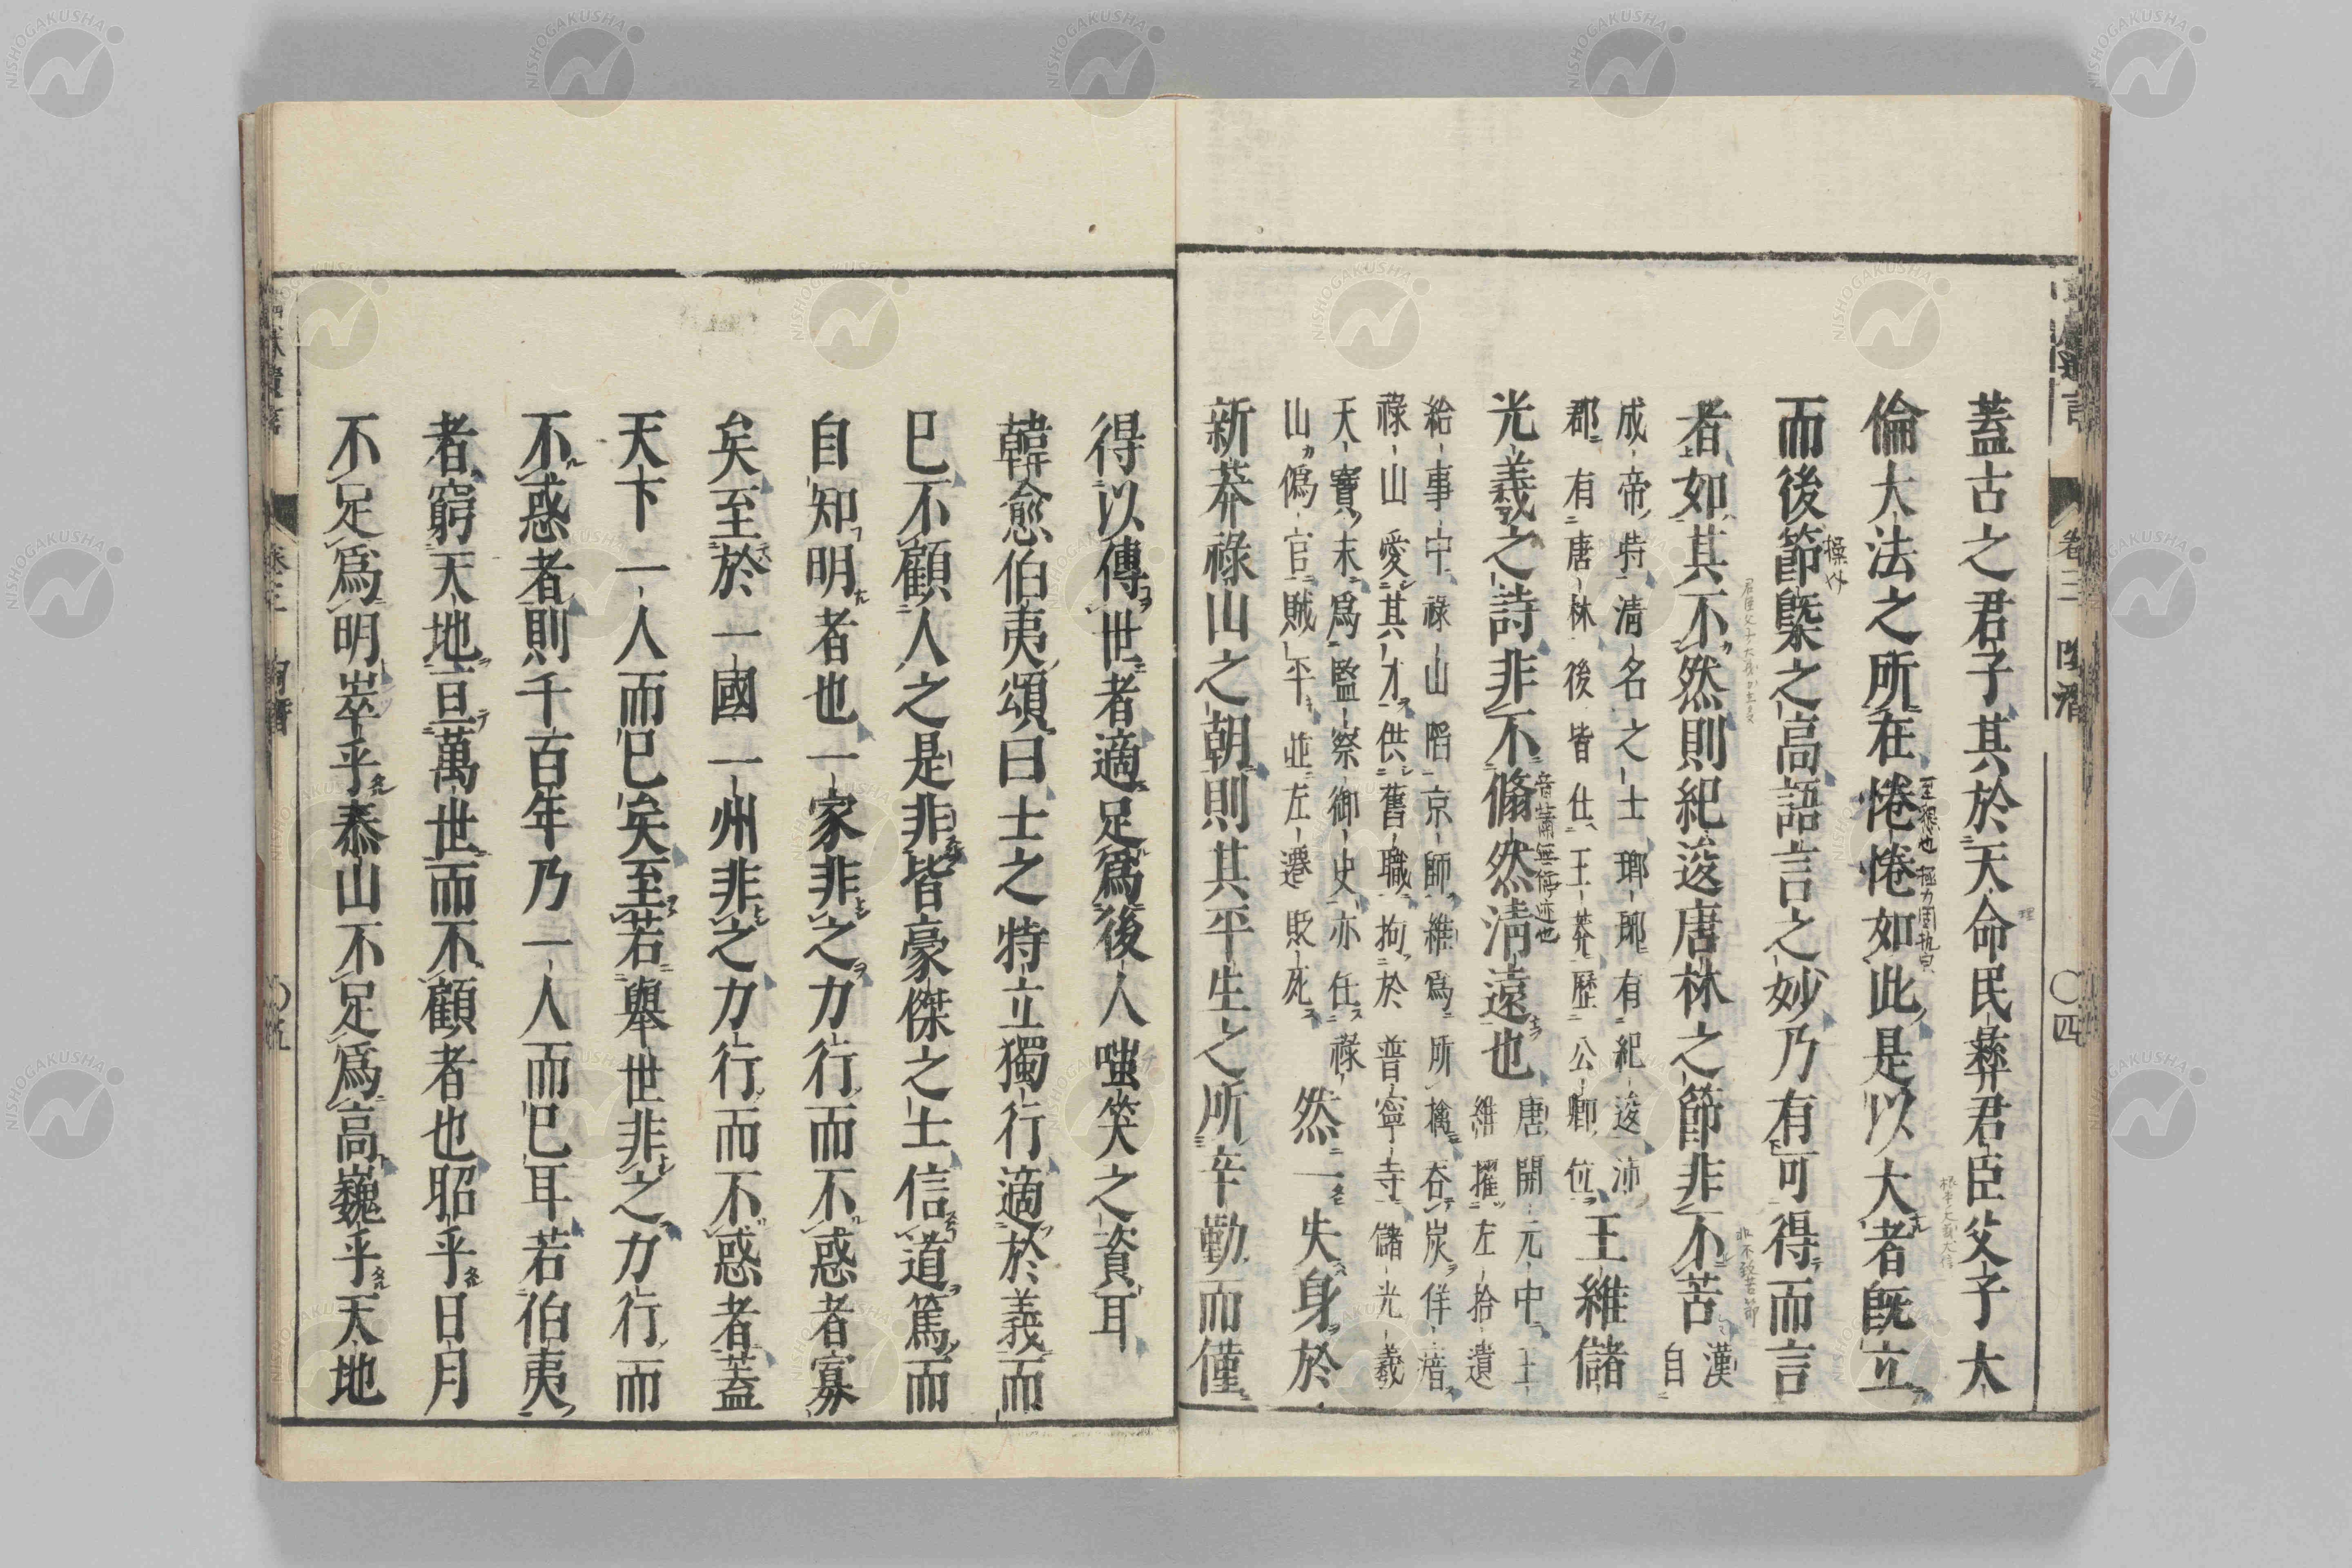 蓋古之君子其於天命民彝君臣父子大
倫大法之所在惓惓如此是以大者既立
而後節槩之高語言之妙乃有可得而言
者如其不然則紀逡唐林之節非不苦漢自
成帝特清名之士瑯耶有紀逡沛
郡有唐林後皆仕王莽歷公卿位王維儲
光羲之詩非不翛然清遠也唐開元中王
維擢左拾遺
給事中祿山陷京師維爲所擒呑炭佯瘖
祿山愛其才供舊職拘於普寧寺儲光羲
天寶末爲監察御史亦仕祿
山僞官賊平並左遷貶死然一失身於
新莽祿山之朝則其平生之所辛勤而僅
卷三
陶潛
〇四
得以傳世者適足爲後人嗤笑之資耳
韓愈伯夷頌曰士之特立獨行適於義而
已不顧人之是非皆豪傑之士信道篤而
自知明者也一家非之力行而不惑者寡
矣至於一國一州非之力行而不惑者蓋
天下一人而已矣至若舉世非之力行而
不惑者則千百年乃一人而已耳若伯夷
者窮天地亘萬世而不顧者也昭乎日月
不足爲明崒乎泰山不足爲高巍乎天地